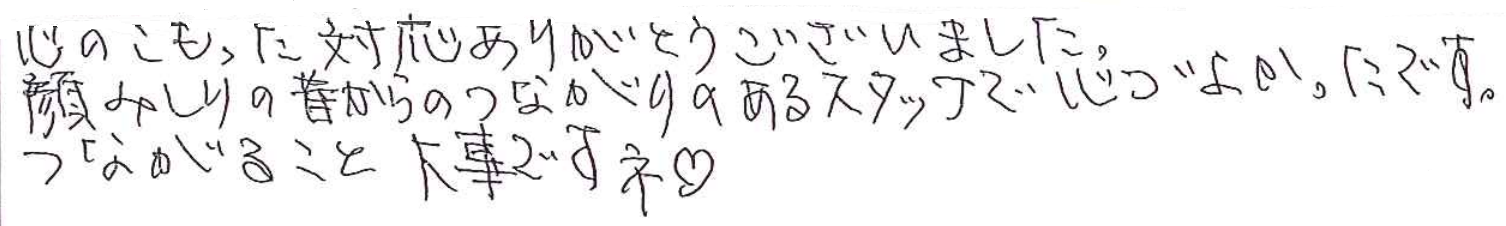 心のこもった対応ありがとうございました。
顔みしりの昔からのつながりのあるスタッフで心づよかったです。
つながること大事ですネ♡